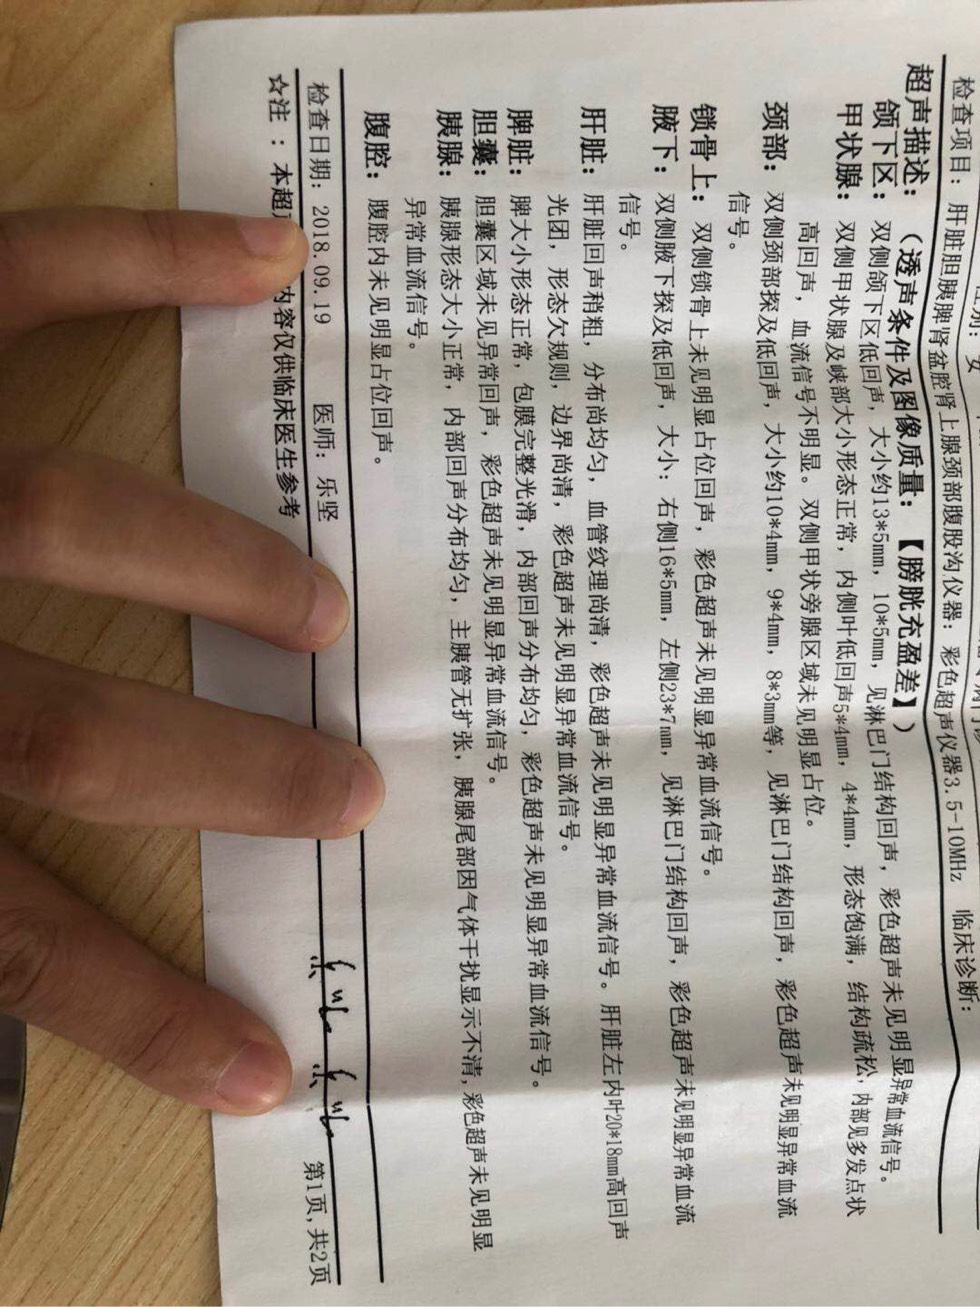 女
检查项目：肝脏胆胰脾肾盆腔肾上腺颈部腹股沟仪器：彩色超声仪器3.5-10MHz 临床诊断：
超声描述：（透声条件及图像质量：【膀胱充盈差】）
颌下区：双侧颌下区低回声，大小约13*5mm，10*5mm，见淋巴门结构回声，彩色超声未见明显异常血流信号。
甲状腺：双侧甲状腺及峡部大小形态正常，内侧叶低回声5*4mm，4*4mm，形态饱满，结构疏松，内部见多发点状
高回声，血流信号不明显。双侧甲状旁腺区域未见明显占位。
颈部：双侧颈部探及低回声，大小约10*4mm，9*4mm，8*3mm等，见淋巴门结构回声，彩色超声未见明显异常血流
信号。
锁骨上：双侧锁骨上未见明显占位回声，彩色超声未见明显异常血流信号。
腋下：双侧腋下探及低回声，大小：右侧16*5mm，左侧23*7mm，见淋巴门结构回声，彩色超声未见明显异常血流
信号。
肝脏：肝脏回声稍粗，分布尚均匀，血管纹理尚清，彩色超声未见明显异常血流信号。肝脏左内叶20*18mm高回声
光团，形态欠规则，边界尚清，彩色超声未见明显异常血流信号。
脾脏：脾大小形态正常，包膜完整光滑，内部回声分布均匀，彩色超声未见明显异常血流信号。
胆囊：胆囊区域未见异常回声，彩色超声未见明显异常血流信号。
胰腺：胰腺形态大小正常，内部回声分布均匀，主胰管无扩张，胰腺尾部因气体干扰显示不清，彩色超声未见明显
异常血流信号。
腹腔：腹腔内未见明显占位回声。
检查日期：2018.09.19 医师：乐坚 第1页，共2页
☆注：本超 内容仅供临床医生参考